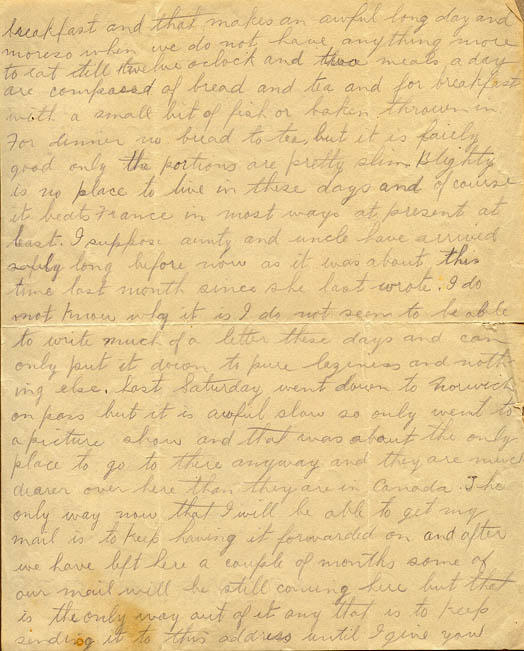 breakfast and that makes an awful long day and
moreso when we do not have anything more
to eat till twelve oclock and two meals a day
are composed of bread and tea and for breakfast
with a small bit of fish or baken thrown in.
For dinner no bread to tea, but it is fairly
good only the portions are pretty slim. Blighty
is no place to live in these days and of course
it beats France in most ways at present at
least. I suppose aunty and uncle have arrived
safely long before now as it was about this
time last month since she last wrote. I do
not know why it is I do not seem to be able
to write much of a letter these days and can
only put it down to pure laziness and noth-
ing else. Last Saturday went down to Norwich
on pass but it is awful slow so only went to
a picture show and that was about the only
place to go to there anyway and they are much
dearer over here than they are in Canada. The
only way now that I will be able to get my
mail is to keep having it forwarded on and after
we have left here a couple of months some of
our mail will be still coming here but that
is the only way out of it any that is to keep
sending it to this address until I give you